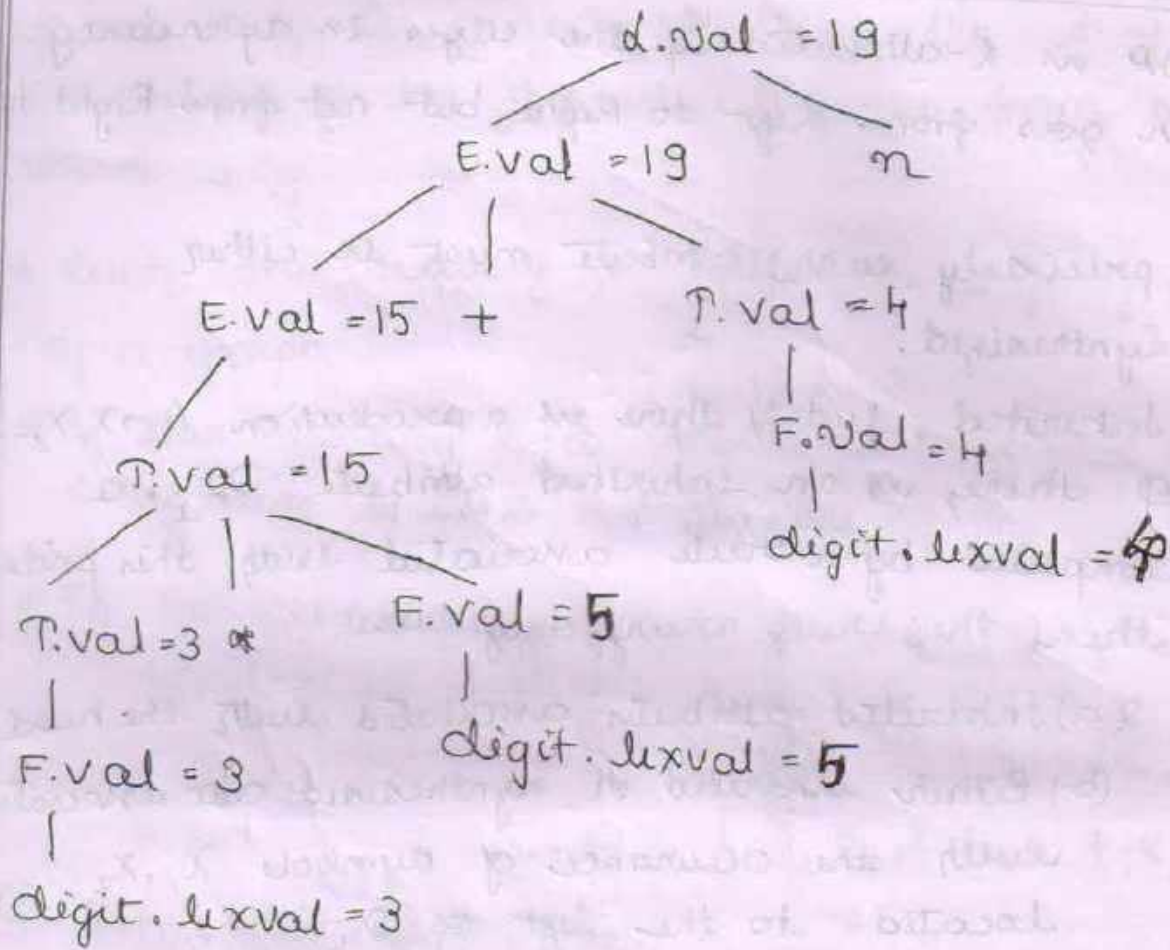 L.val = 19
E.val = 19 n
E.val = 15 + T.val = 4
F.val = 4
T.val = 15
digit.lexval = 4
T.val = 3 * F.val = 5
F.val = 3 digit.lexval = 5
digit.lexval = 3